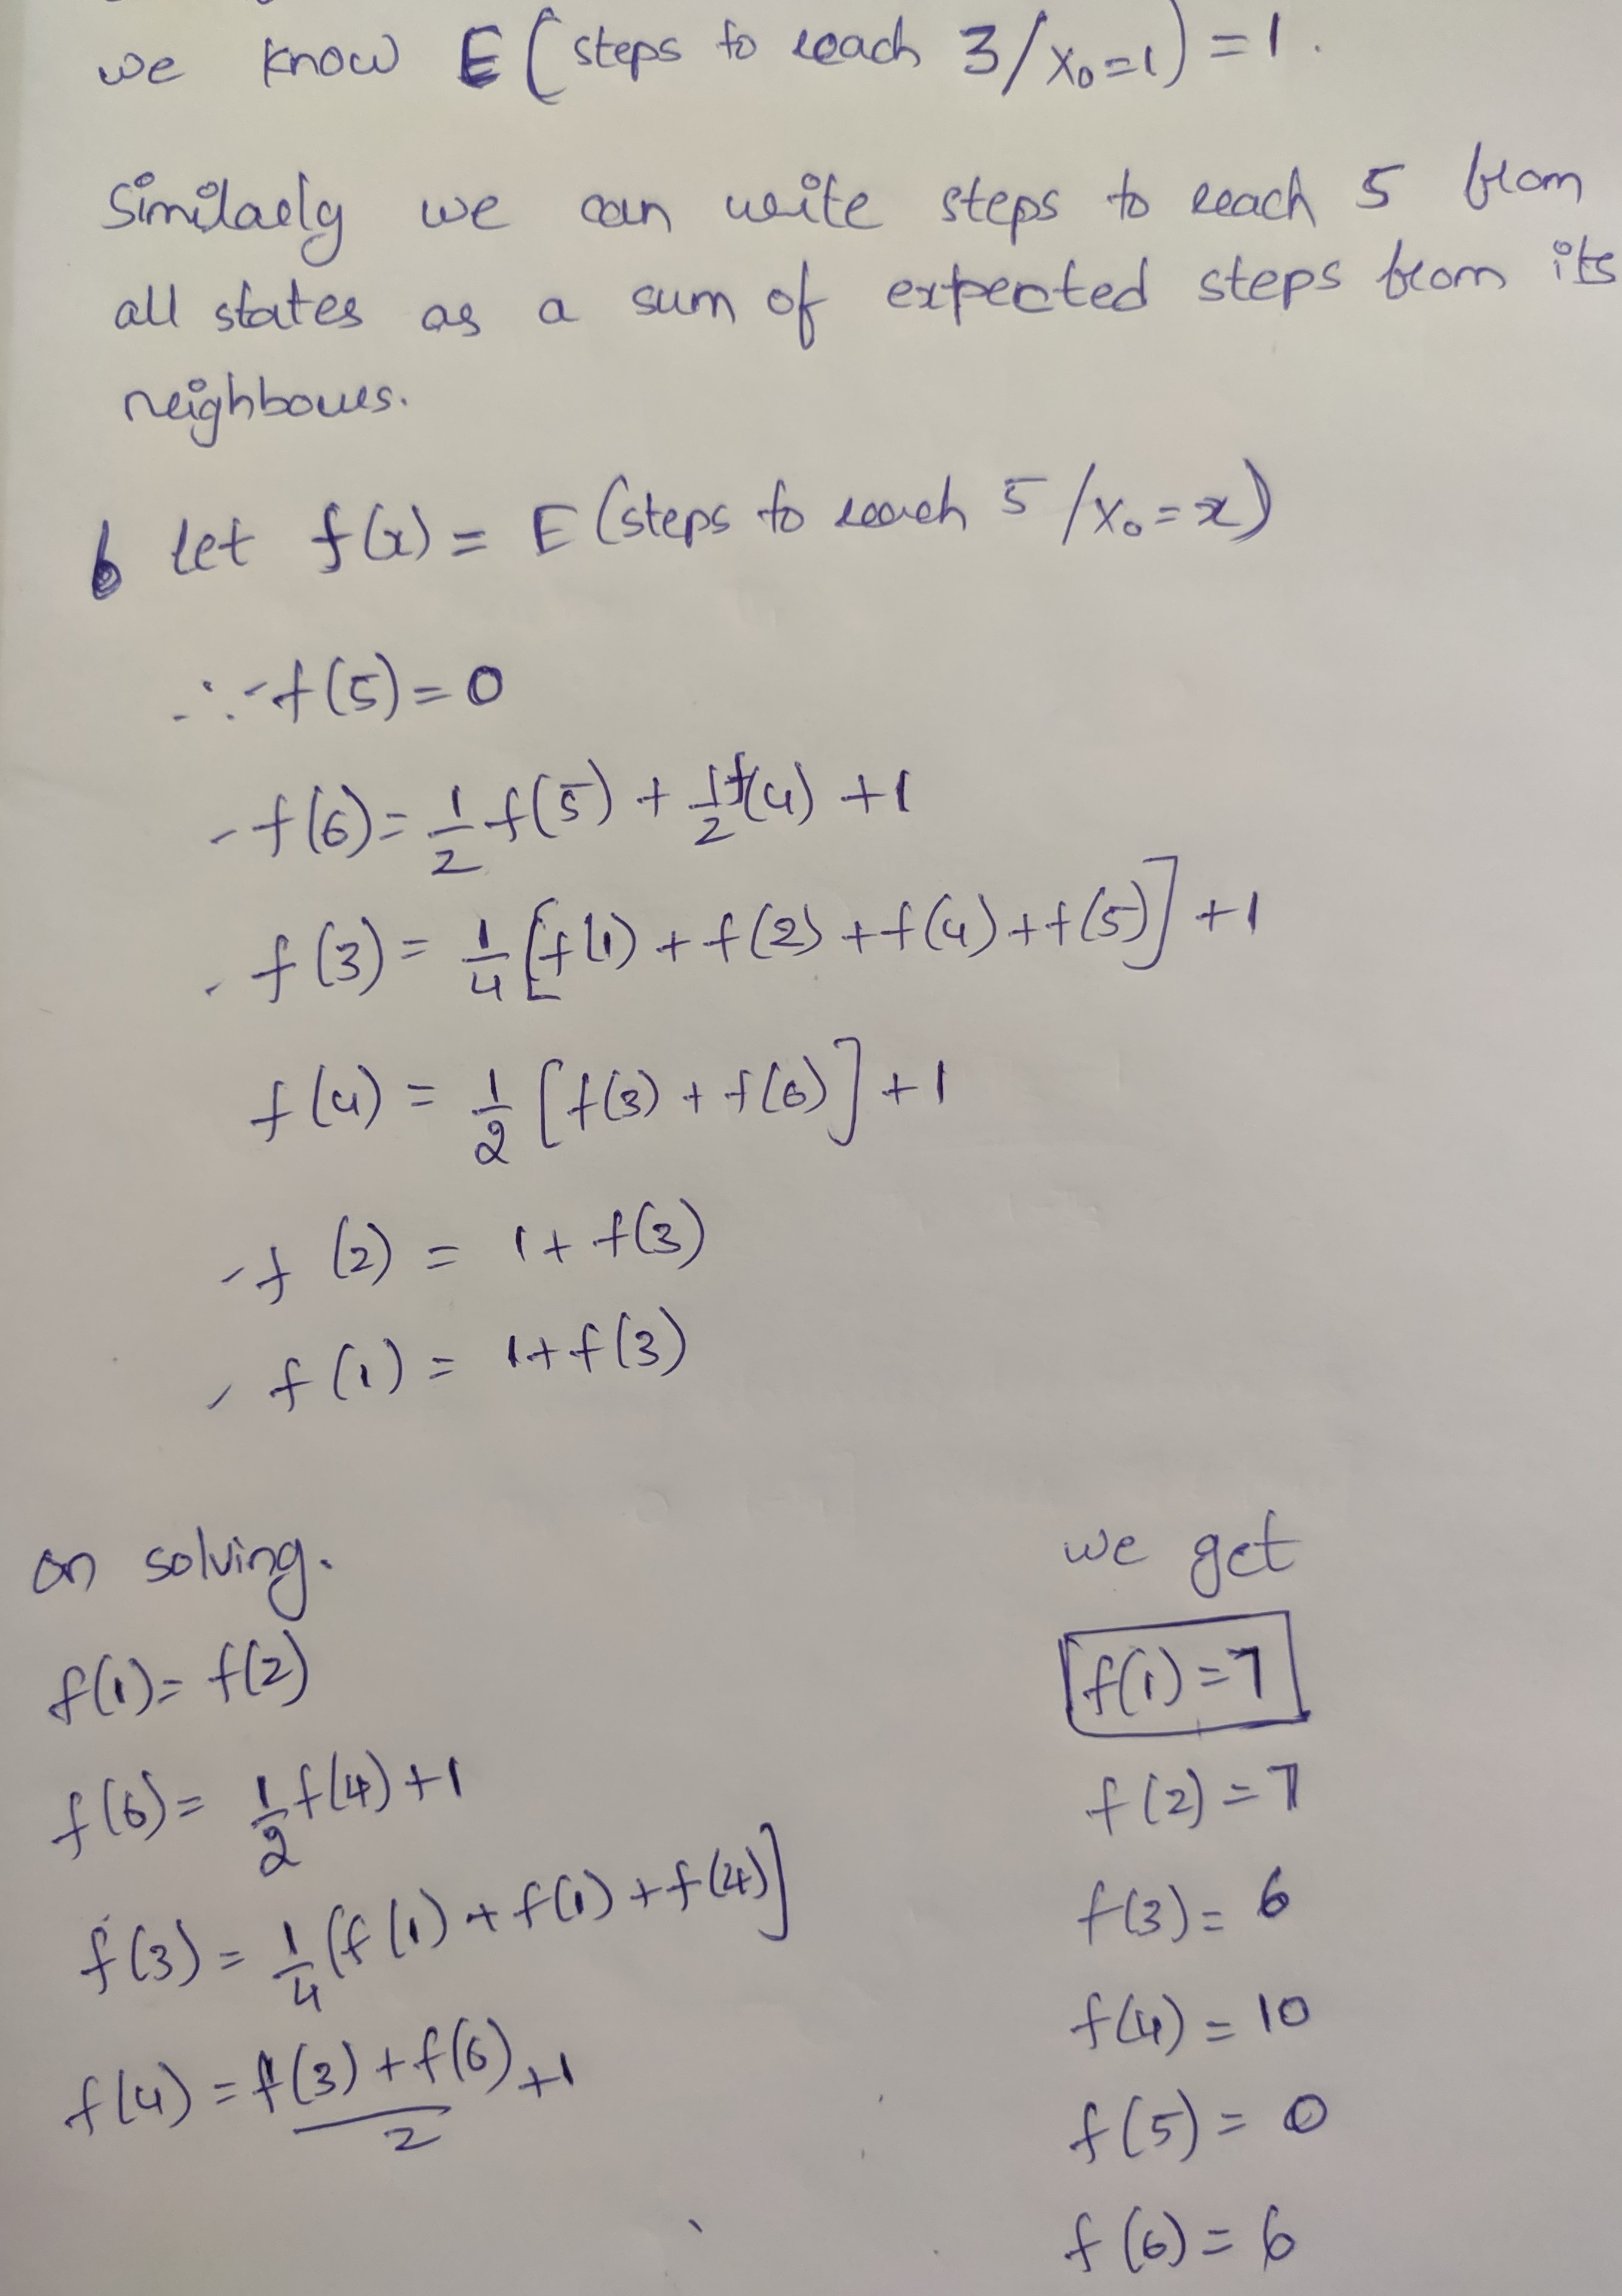 we know E(steps to reach 3/x₀=1)=1.
Similarly we can write steps to reach 5 from
all states as a sum of expected steps from its
neighbours.
Let f(x) = E(steps to reach 5/x₀=x)
∴ f(5)=0
- f(6)= 1/2 f(5) + 1/2 f(4) +1
- f(3)= 1/4 [f(1) + f(2) + f(4) + f(5)] +1
f(4) = 1/2 [f(3) + f(6)] +1
- f(2) = 1+ f(3)
- f(1) = 1+ f(3)
on solving.
f(1)= f(2)
f(6)= 1/2 f(4)+1
f(3)= 1/4 (f(1) + f(1) + f(4)]
f(4) = f(3)+f(6)/2 +1
we get
f(1)=7
f(2)=7
f(3)= 6
f(4)= 10
f(5)= 0
f(6)= 6